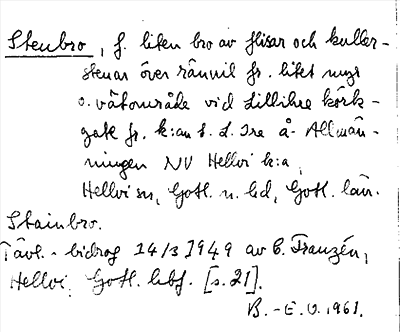 Stenbro, f. liten bro av flisar och kuller-
stenar över rännil fr. litet myr
o. våtområde vid Lillihre körk-
gate fr. k:an t. d. Ire å - Allmän-
ningen NV Hellvi k:a,
Hellvi sn, Gotl. n. hd, Gotl. län.
Stainbro.
Tävl.-bidrag 14/3 1949 av C. Franzén,
Hellvi, Gotl. hbf. [s. 21].
B.-E. O. 1961.